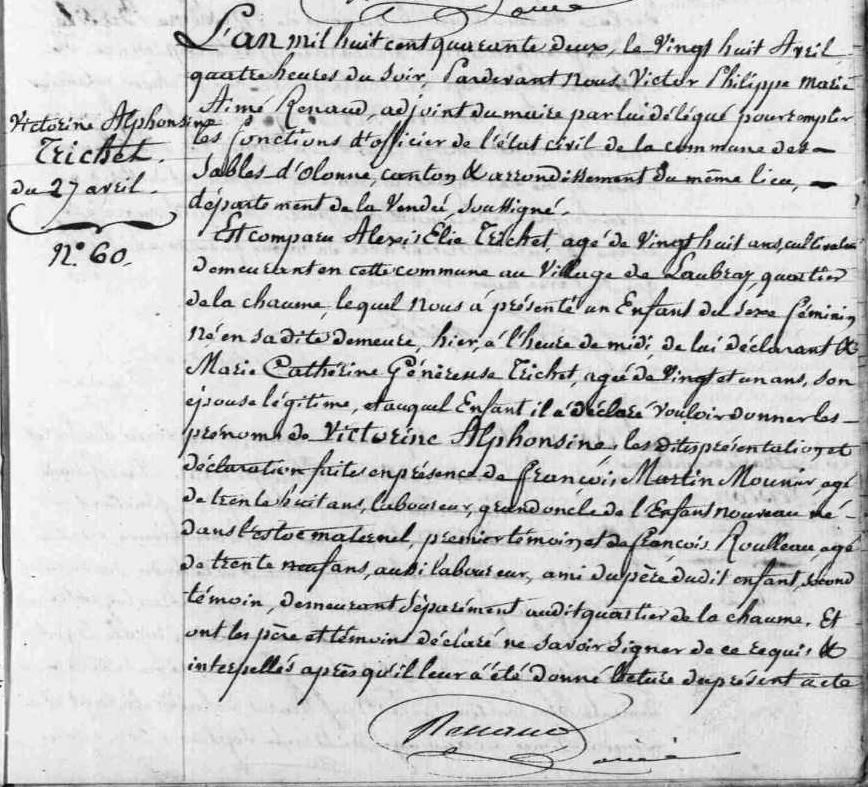 Victorine Alphonsine
Trichet.
du 27 avril.
N.° 60.
L'an mil huit cent quarante deux, le Vingt huit Avril,
quatre heures du Soir, Pardevant Nous Victor Philippe Marie
Aimé Renaud, adjoint du maire par lui délégué pour remplir
les fonctions d'officier de l'état civil de la commune des
Sables d'olonne, canton & arrondissement du même lieu,
département de la Vendée, Soussigné.
Est comparu Alexis Elie Trichet, agé de Vingt huit ans, cultivateur
demeurant en cette commune au Village de Laubray, quartier
de la chaume, lequel Nous à présenté un Enfant du Sexe féminin
Né en sa dite demeure, hier, à l'heure de midi, de lui déclarant &
Marie Catherine Généreuse Trichet, agée de Vingt et un ans, son
épouse légitime, et auquel Enfant il à déclaré Vouloir donner les
prénoms de Victorine Alphonsine, les dites présentation et
déclaration faites en présence de françois Martin Mounier, agé
de trente huit ans, laboureur, grand oncle de l'Enfant nouveau né
dans l'estoc maternel, premier témoin et de françois Roulleau, agé
de trente neuf ans, aussi laboureur, ami du père dudit enfant, second
témoin, demeurant Séparément audit quartier de la chaume. Et
ont les père et témoin déclaré ne Savoir Signer de ce requis &
interpellés après qu'il leur à été donné lecture du présent acte
Renaud
Aimé